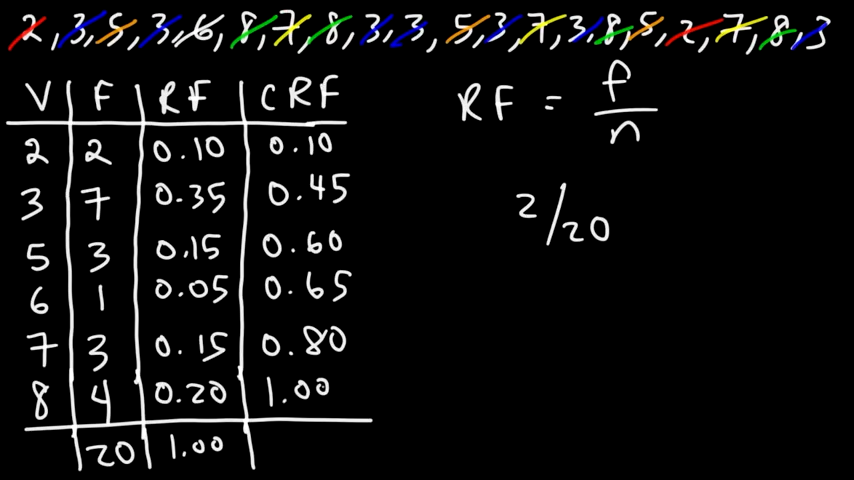 2,3,5,3,6,8,7,8,3,3,5,3,7,3,8,5,2,7,8,3
V F RF CRF
2 2 0.10 0.10
3 7 0.35 0.45
5 3 0.15 0.60
6 1 0.05 0.65
7 3 0.15 0.80
8 4 0.20 1.00
20 1.00
RF = f/n
2/20